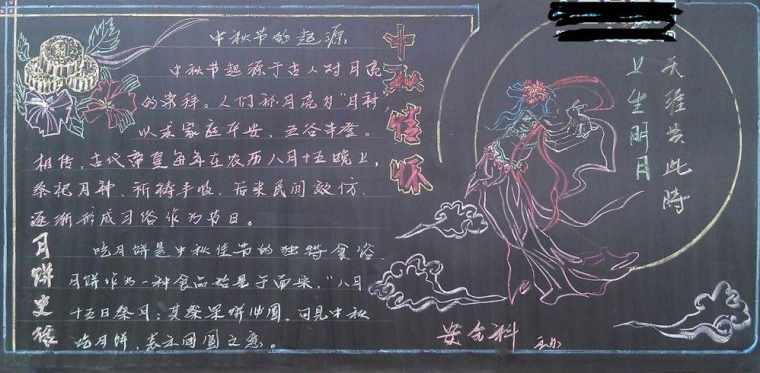 中秋节的起源
中秋节起源于古人对月亮
的崇拜。人们称月亮为“月神”
以求家庭平安、五谷丰登。
相传，古代帝皇每年在农历八月十五晚上，
祭祀月神、祈祷丰收，后来民间效仿，
逐渐形成习俗作为节日。
月饼史话
吃月饼是中秋佳节的独特食俗，
月饼作为一种食品
八月
十五日祭月；其祭果饼
圆，可见中秋
吃月饼，表示团圆之意。
中秋情怀
上生明月
天涯共此時
安全科